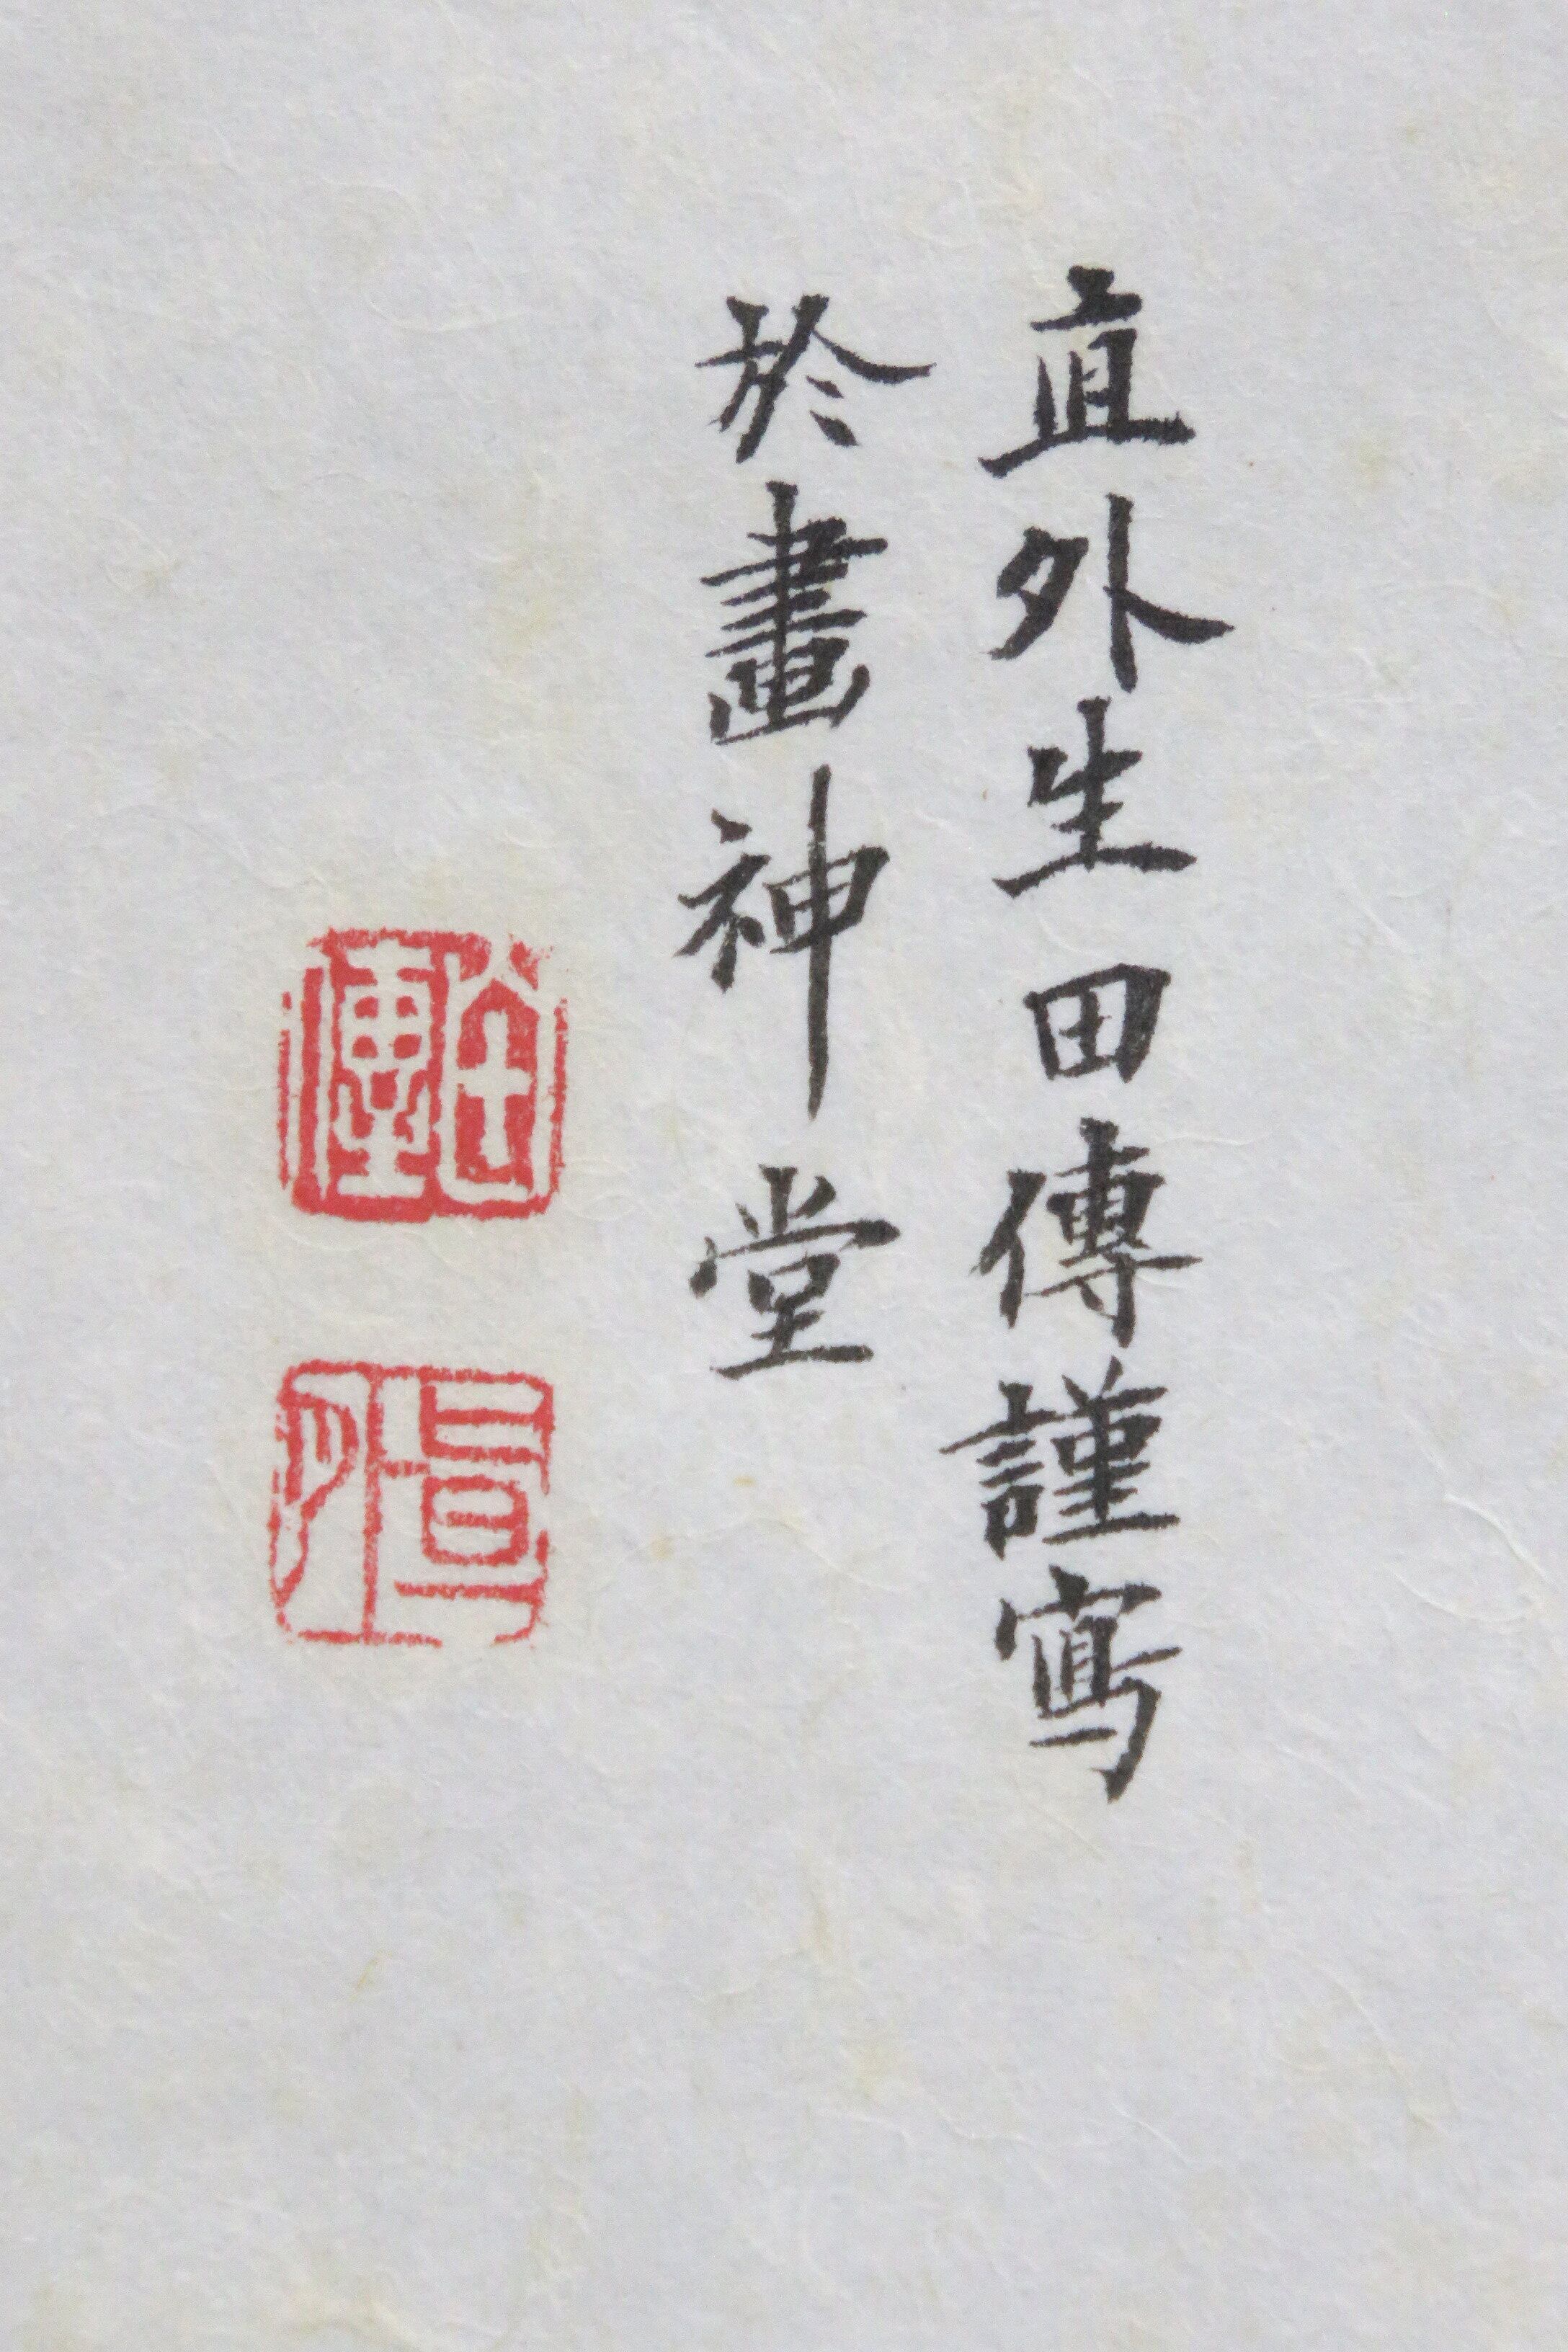 直外生田傳謹寫
於畫神堂